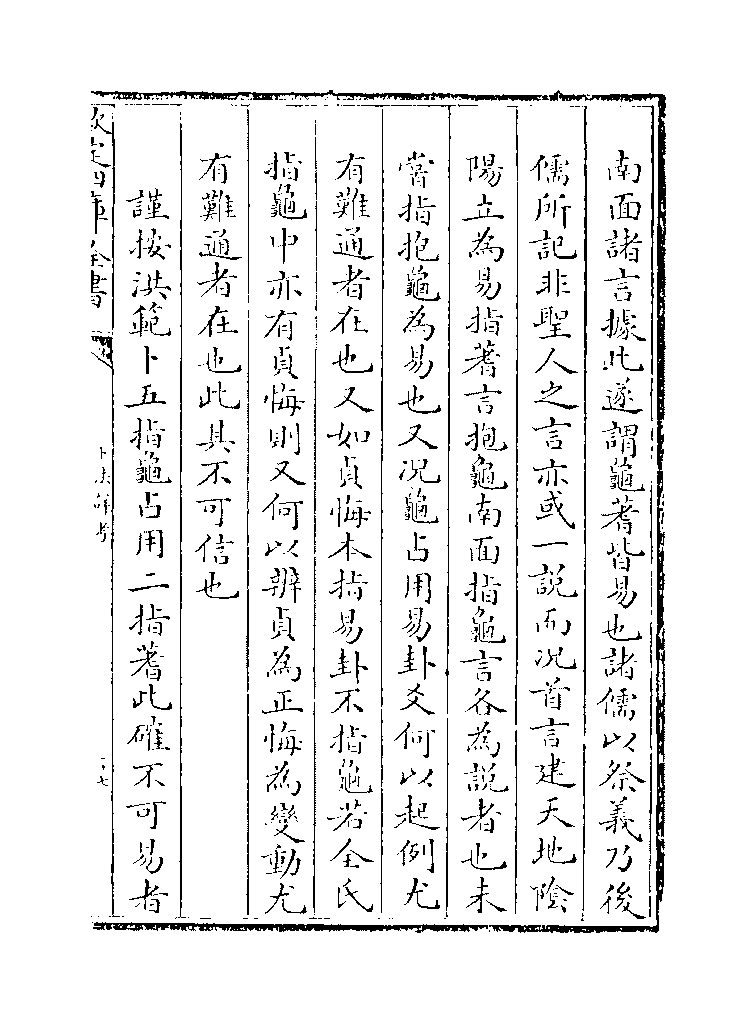 南面諸言據此遂謂龜蓍皆易也諸儒以祭義乃後
儒所記非聖人之言亦或一説而况首言建天地陰
陽立為易指蓍言抱龜南面指龜言各為説者也未
嘗指抱龜為易也又况龜占用易卦爻何以起例尤
有難通者在也又如貞悔本指易卦不指龜若全氏
指龜中亦有貞悔則又何以辨貞為正悔為變動尤
有難通者在也此其不可信也
謹按洪範卜五指龜占用二指蓍此確不可易者
欽定四庫全書
卜法詳考